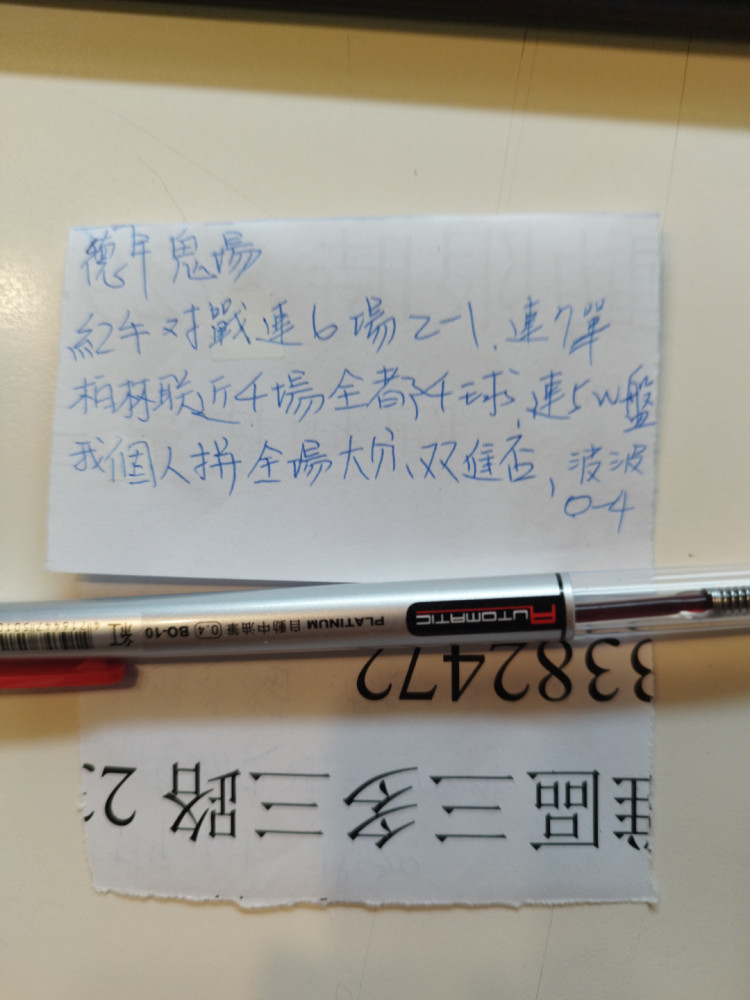 德甲鬼場
紅牛对戰連6場2-1、連7單
柏林联近4場全都4球,連5W盤
我個人拼全場大分、双進否、波波
0-4
AUTOMATIC
PLATINUM 自動中油筆 0.4 BO-10 紅
3382472
區三多三路 2